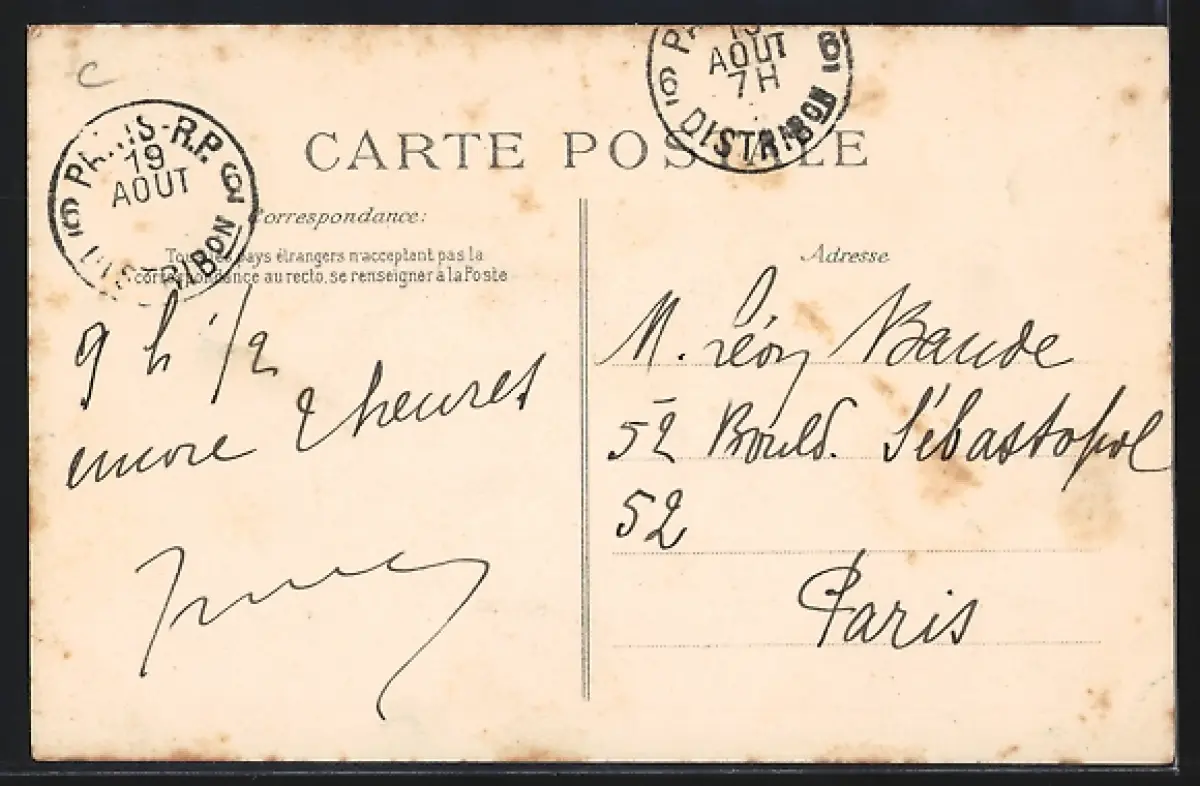 C
PARIS-R.P.
19
AOUT
DISTRIBON
PARIS
19
AOUT
7H
DISTRIBON
CARTE POSTALE
Correspondance:
Tous les pays étrangers n'acceptant pas la
correspondance au recto, se renseigner à la Poste
9 h 1/2
encore 2 heures
Adresse
M. Léon Baude
52 Bould. Sébastopol
52
Paris